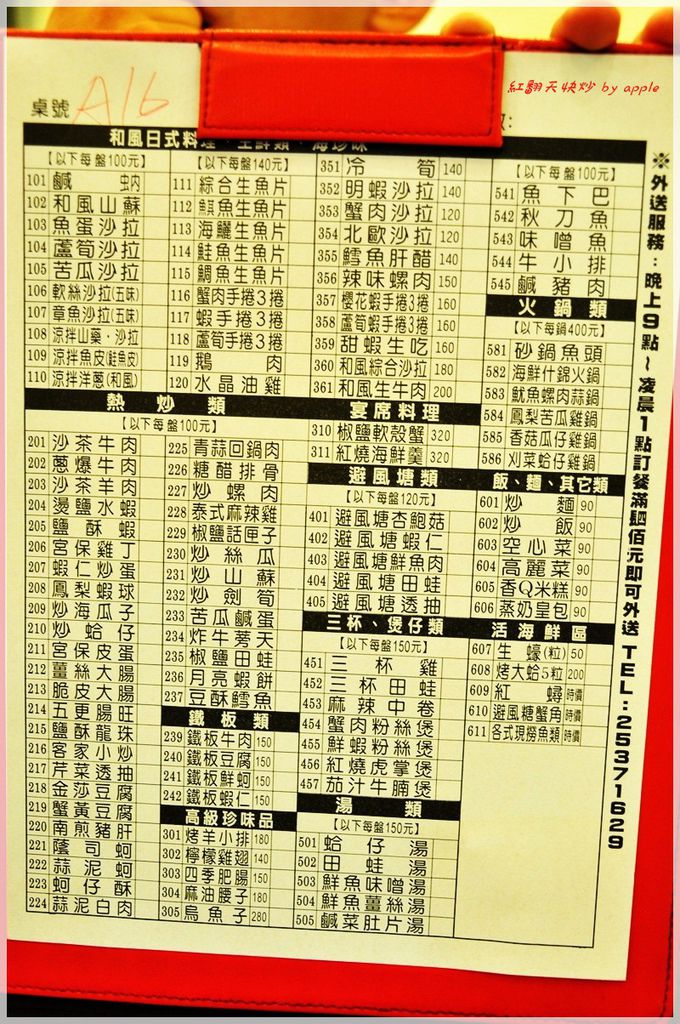 紅翻天快炒 by apple
桌號 A16
和風日式料理、生鮮類、海珍味
【以下每盤100元】
101 鹹蚋
102 和風山蘇
103 魚蛋沙拉
104 蘆筍沙拉
105 苦瓜沙拉
106 軟絲沙拉(五味)
107 章魚沙拉(五味)
108 涼拌山藥、沙拉
109 涼拌魚皮(鮭魚皮)
110 涼拌洋蔥(和風)
【以下每盤140元】
111 綜合生魚片
112 鮙魚生魚片
113 海鱺生魚片
114 鮭魚生魚片
115 鯛魚生魚片
116 蟹肉手捲3捲
117 蝦手捲3捲
118 蘆筍手捲3捲
119 鵝肉
120 水晶油雞
351 冷筍 140
352 明蝦沙拉 140
353 蟹肉沙拉 120
354 北歐沙拉 120
355 鱈魚肝醋 140
356 辣味螺肉 150
357 櫻花蝦手捲3捲 160
358 蘆筍蝦手捲3捲 160
359 甜蝦生吃 160
360 和風綜合沙拉 180
361 和風生牛肉 200
【以下每盤100元】
541 魚下巴
542 秋刀魚
543 味噌魚
544 牛小排
545 鹹豬肉
火鍋類
【以下每鍋400元】
581 砂鍋魚頭
582 海鮮什錦火鍋
583 魷魚螺肉蒜鍋
584 鳳梨苦瓜雞鍋
585 香菇瓜仔雞鍋
586 刈菜蛤仔雞鍋
熱炒類
【以下每盤100元】
201 沙茶牛肉
202 蔥爆牛肉
203 沙茶羊肉
204 燙鹽水蝦
205 鹽酥蝦
206 宮保雞丁
207 蝦仁炒蛋
208 鳳梨蝦球
209 炒海瓜子
210 炒蛤仔
211 宮保皮蛋
212 薑絲大腸
213 脆皮大腸
214 五更腸旺
215 鹽酥龍珠
216 客家小炒
217 芹菜透抽
218 金莎豆腐
219 蟹黃豆腐
220 南煎豬肝
221 蔭司蚵
222 蒜泥蚵
223 蚵仔酥
224 蒜泥白肉
225 青蒜回鍋肉
226 糖醋排骨
227 炒螺肉
228 泰式麻辣雞
229 椒鹽話匣子
230 炒絲瓜
231 炒山蘇
232 炒劍筍
233 苦瓜鹹蛋
234 炸牛蒡天
235 椒鹽田蛙
236 月亮蝦餅
237 豆酥鱈魚
鐵板類
239 鐵板牛肉 150
240 鐵板豆腐 150
241 鐵板鮮蚵 150
242 鐵板蝦仁 150
高級珍味品
301 烤羊小排 180
302 檸檬雞翅 140
303 四季肥腸 150
304 麻油腰子 180
305 烏魚子 280
宴席料理
310 椒鹽軟殼蟹 320
311 紅燒海鮮羹 320
避風塘類
【以下每盤120元】
401 避風塘杏鮑菇
402 避風塘蝦仁
403 避風塘鮮魚肉
404 避風塘田蛙
405 避風塘透抽
三杯、煲仔類
【以下每盤150元】
451 三杯雞
452 三杯田蛙
453 麻辣中卷
454 蟹肉粉絲煲
455 鮮蝦粉絲煲
456 紅燒虎掌煲
457 茄汁牛腩煲
湯類
【以下每盤150元】
501 蛤仔湯
502 田蛙湯
503 鮮魚味噌湯
504 鮮魚薑絲湯
505 鹹菜肚片湯
飯、麵、其它類
601 炒麵 90
602 炒飯 90
603 空心菜 90
604 高麗菜 90
605 香Q米糕 90
606 蒸奶皇包 90
活海鮮區
607 生蠔(粒) 50
608 烤大蛤5粒 200
609 紅蟳 時價
610 避風糖蟹角 時價
611 各式現撈魚類 時價
※外送服務：晚上9點～凌晨1點訂餐滿肆佰元即可外送 TEL:25371629